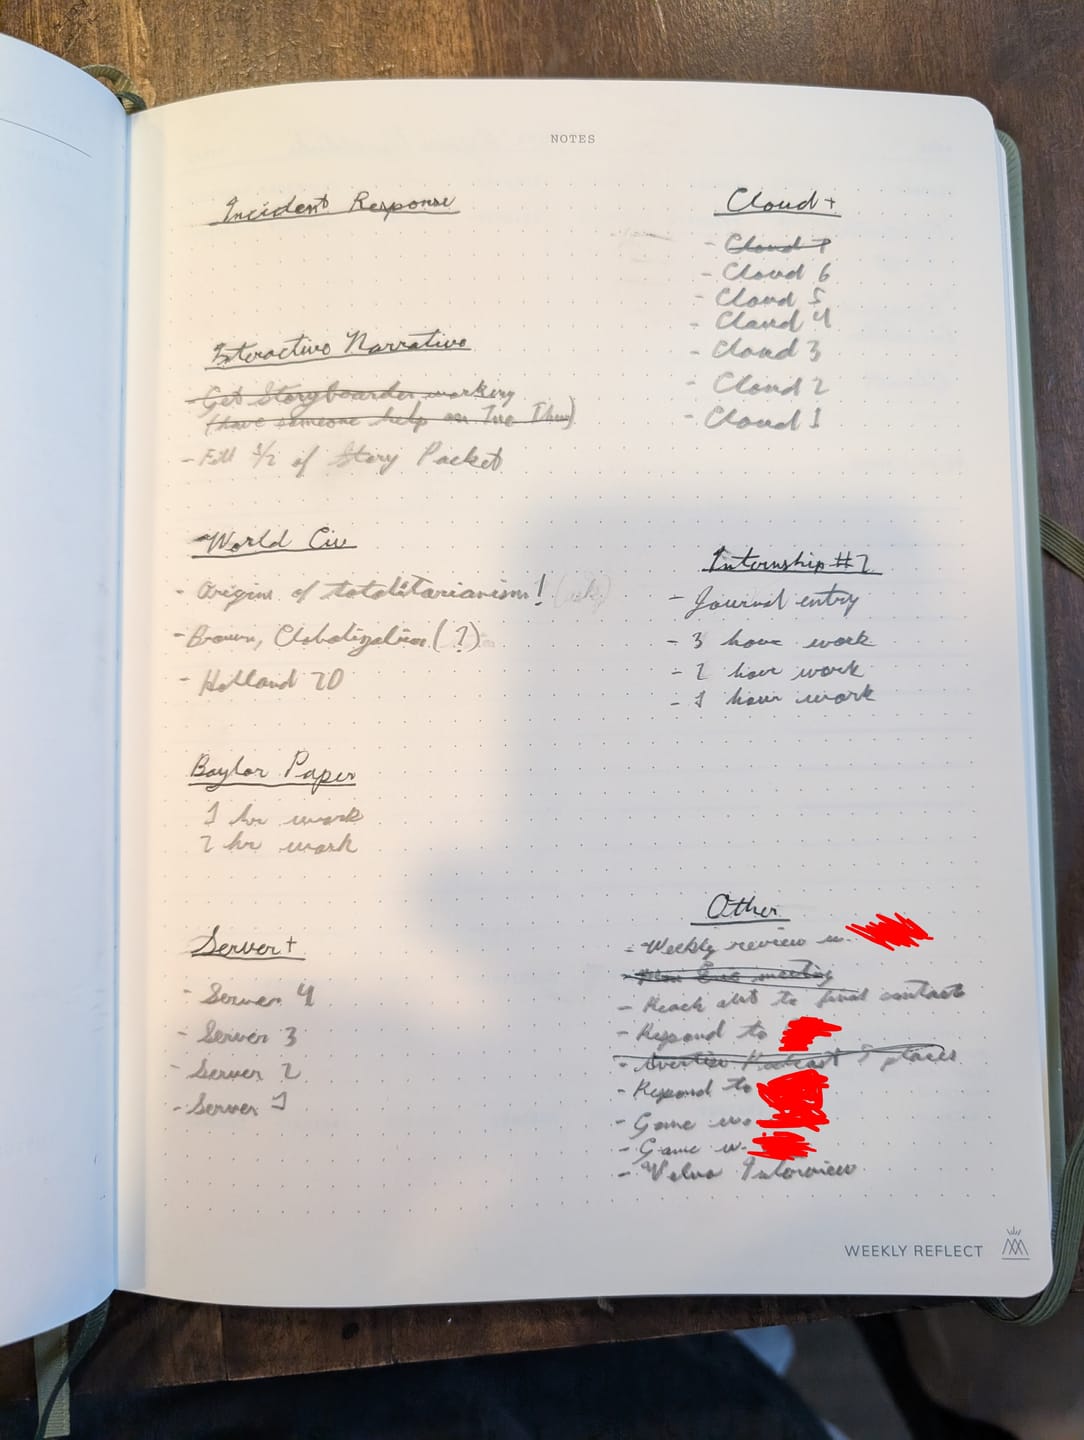 NOTES
Incident Response
Interactive Narrative
- Get Storyboarder working
(have someone help on Tue Thu)
- Fill 1/2 of Story Packet
World Civ
- Origins of totalitarianism!
- Brown, Globalization (?)
- Holland 20
Baylor Paper
1 hr work
2 hr work
Server+
- Server 4
- Server 3
- Server 2
- Server 1
Cloud+
- Cloud 7
- Cloud 6
- Cloud 5
- Cloud 4
- Cloud 3
- Cloud 2
- Cloud 1
Internship #2
- Journal entry
- 3 hour work
- 2 hour work
- 1 hour work
Other
- Weekly review w.
- meeting
- Reach out to final contact
- Respond to
- Podcast places
- Respond to
- Game w.
- Game w.
- Interview
WEEKLY REFLECT